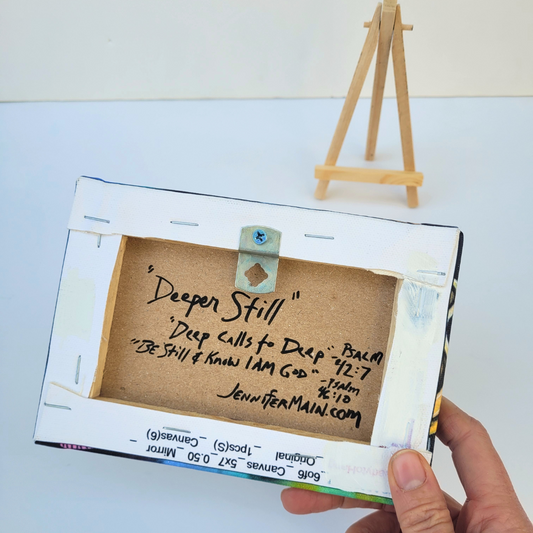 "Deeper Still"
"Deep Calls to Deep" - Psalm 42:7
"Be Still & Know I AM GOD" - Psalm 46:10
JenniferMain.com
_6of6_ Canvas_ 5x7_0.50_ Mirror_
Original_ 1pcs(S)_ Canvas(6)